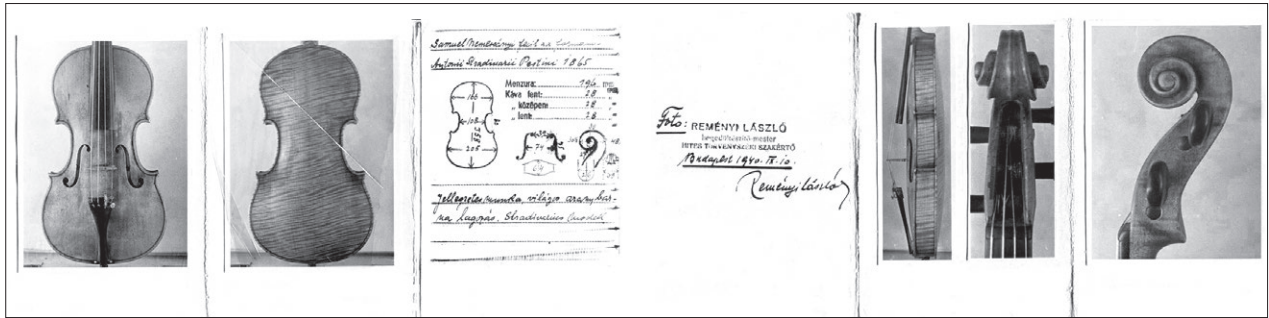 Samuel Nemessányi
Antonii Stradivarii Pestini 1865
Menzura: 196 mm
Káva fent: 28 "
" középen: 28 "
" lent: 28 "
166
108
206
74
64
Jellegzetes munka, világos arany bar-
na lakozás. Stradivarius modell.
Foto: REMÉNYI LÁSZLÓ
hegedűkészítő mester
HITES TÖRVÉNYSZÉKI SZAKÉRTŐ
Budapest 1940. IV. 10.
Reményi László